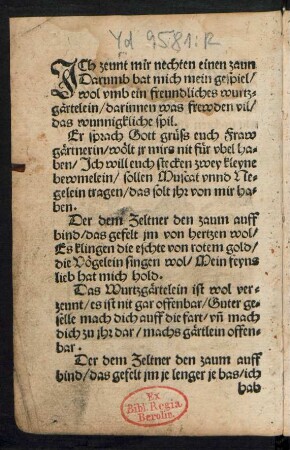 Yd 9581:R
ICh zeunt mir nechten einen zaun
Darumb hat mich mein gespiel/
wol vmb ein freundliches wurtz-
gärtelein/ darinnen was frewden vil/
das wunnigkliche spil.
Er sprach Gott grüß euch Fraw
gärtnerin/ wölt jr mirs nit für vbel ha-
ben/ Ich will euch stecken zwey kleyne
bewmelein/ sollen Muscat vnnd Ne-
gelein tragen/ das solt jhr von mir ha-
ben.
Der dem Zeltner den zaum auff
bind/ das gefelt jm von hertzen wol/
Es klingen die eschte von rotem gold/
die Vögelein singen wol/ Mein feyns
lieb hat mich hold.
Das Wurtzgärtelein ist wol ver-
zeunt/ es ist nit gar offenbar/ Guter ge-
selle mach dich auff die fart/ vñ mach
dich zu jhr dar/ machs gärtlein offen-
bar.
Der dem Zeltner den zaum auff
bind/ das gefelt jm je lenger je bas/ ich
hab
Ex
Bibl. Regia
Berolin.